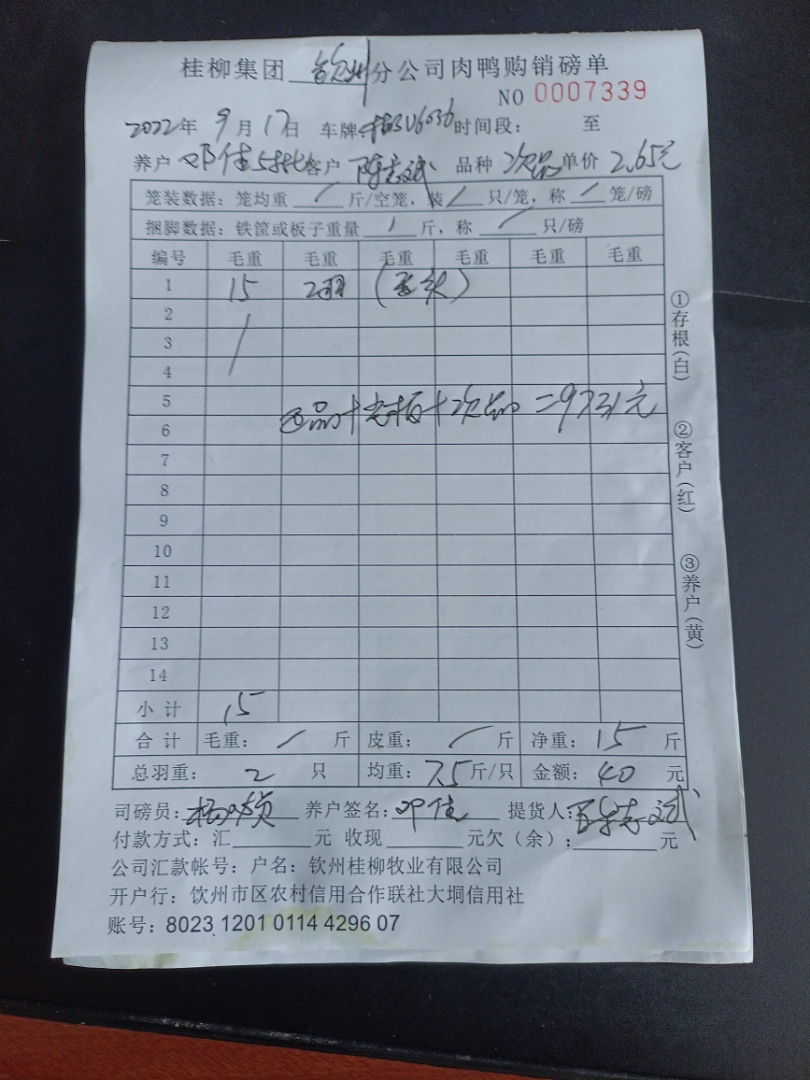 桂柳集团 钦州 分公司肉鸭购销磅单
NO 0007339
2022年 9月17日 车牌: 时间段: 至
养户 邓佳 客户 陈志斌 品种 次品 单价 2.65元
笼装数据:笼均重 / 斤/空笼,装 / 只/笼,称 / 笼/磅
捆脚数据:铁筐或板子重量 / 斤,称 / 只/磅
编号 毛重 毛重 毛重 毛重 毛重 毛重
1 15 2羽
2
3
4
5
6
正品+光板+次品=9731元
7
8
9
10
11
12
13
14
小计 15
合计 毛重: / 斤 皮重: / 斤 净重: 15 斤
总羽重: 2 只 均重: 7.5 斤/只 金额: 40 元
司磅员: 养户签名: 邓佳 提货人: 陈志斌
付款方式:汇 元 收现 元欠(余): 元
公司汇款帐号:户名:钦州桂柳牧业有限公司
开户行:饮州市区农村信用合作联社大垌信用社
账号:8023 1201 0114 4296 07
①存根(白)
②客户(红)
③养户(黄)